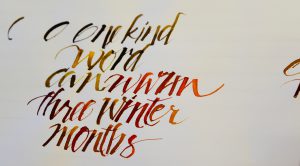 one kind
word
can warm
three winter
months